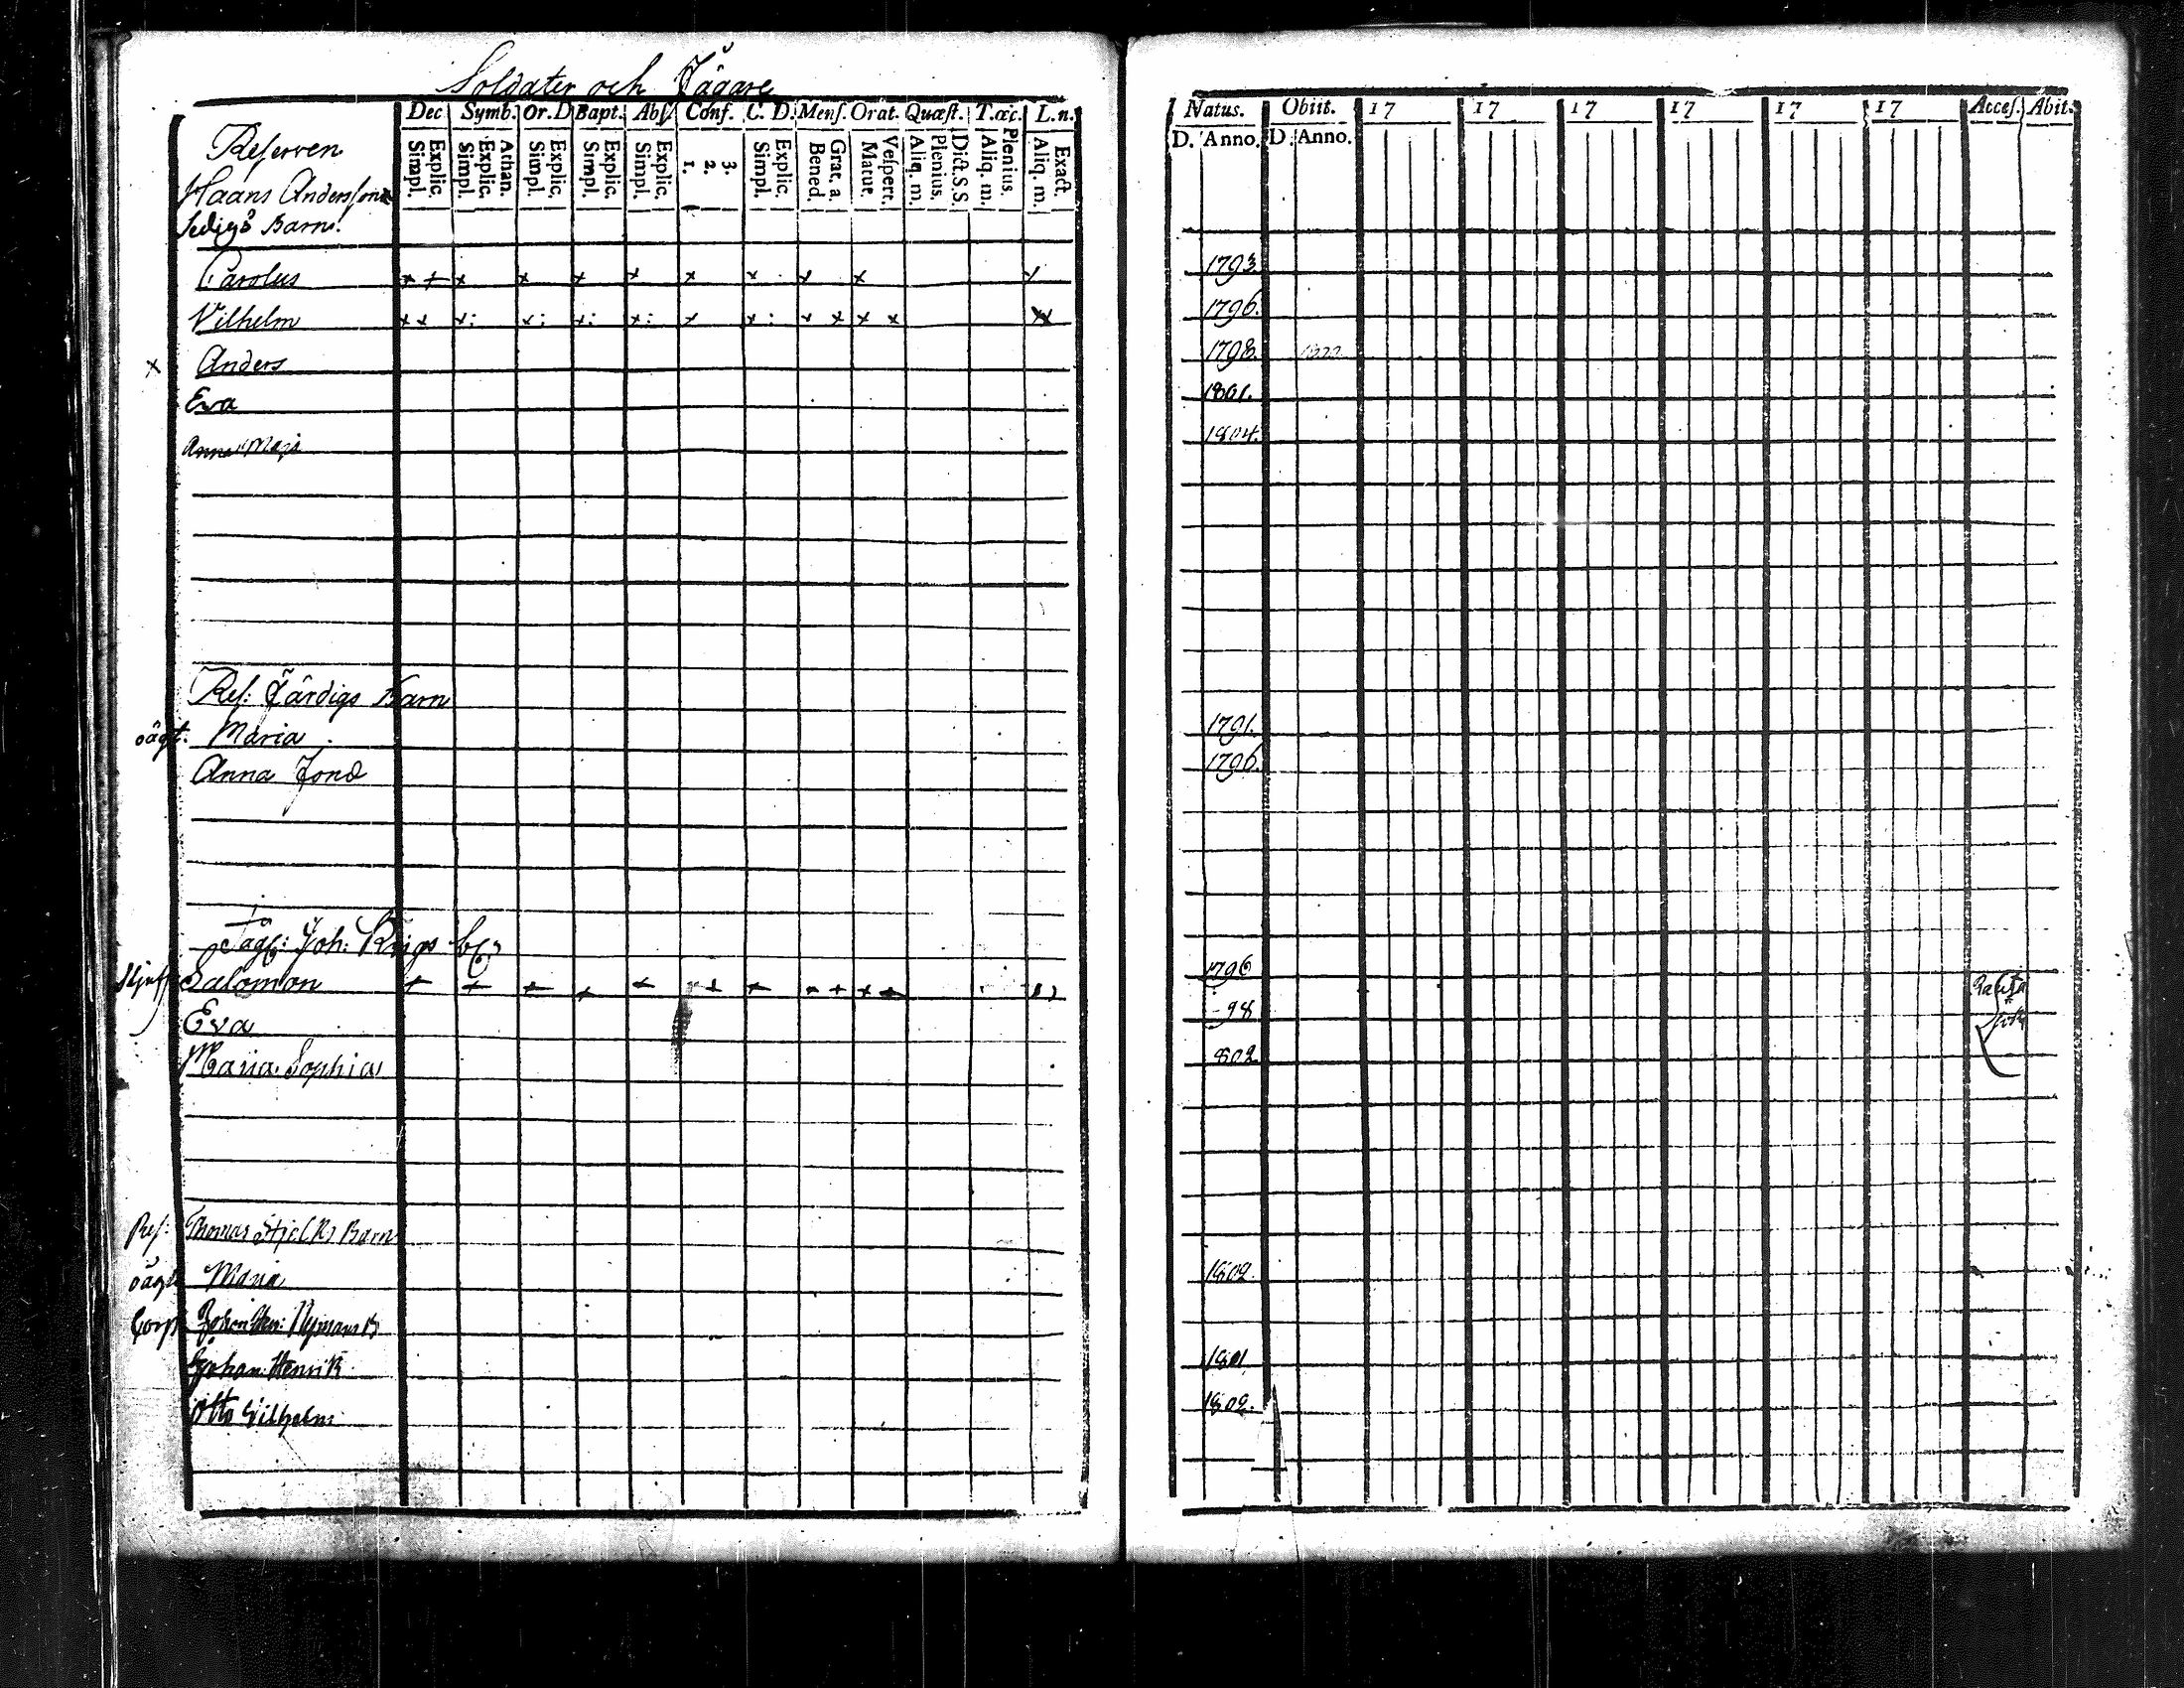 Soldater och Jägare
Dec Symb. Or. D Bapt. Abſ. Conf. C. D. Menſ. Orat. Quæſt. T.œc. L.n.
Explic. Simpl. Athan. Explic. Simpl. Explic. Simpl. Explic. Simpl. Explic. Simpl. 3. 2. 1. Explic. Simpl. Grat. a. Bened. Veſpert. Matut. Dict.S.S. Plenius. Aliq. m. Plenius. Aliq. m. Exact. Aliq. m.
Reſerven
Haans Anderſons
Barn
Carolus
Vilhelm
x Anders
Eva
Anna Maja
Reſ: Färdigs Barn
oägt. Maria
Anna
Jäg: Joh: Krigs
Salomon
Eva
Maria Sophia
Reſ: Thomas Barn
oägt Maria
Corp: Johan Hen: Nymans B
Johan Henrik
Otto Vilhelm
Natus. Obiit. 17 17 17 17 17 17 Acceſ. Abit.
D. Anno. D. Anno.
1793.
1796.
1798.
1801.
1804.
1791.
1796.
1796
-98
802
1802.
1801
1802.